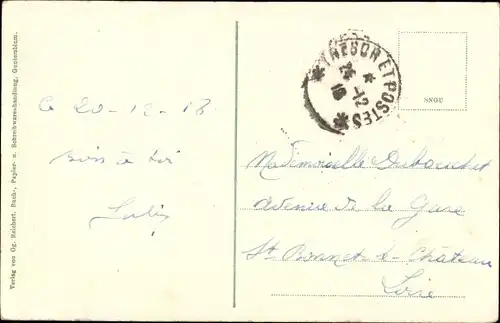 Verlag von Gg. Reichert, Buch-, Papier- u. Schreibwarenhandlung, Guntersblum.
Ce 20-12-18
TRESOR ET POSTES
-12
18
SNGU
Mademoiselle Dubouchet
avenue de la Gare
St Bonnet-le-Château
Loire